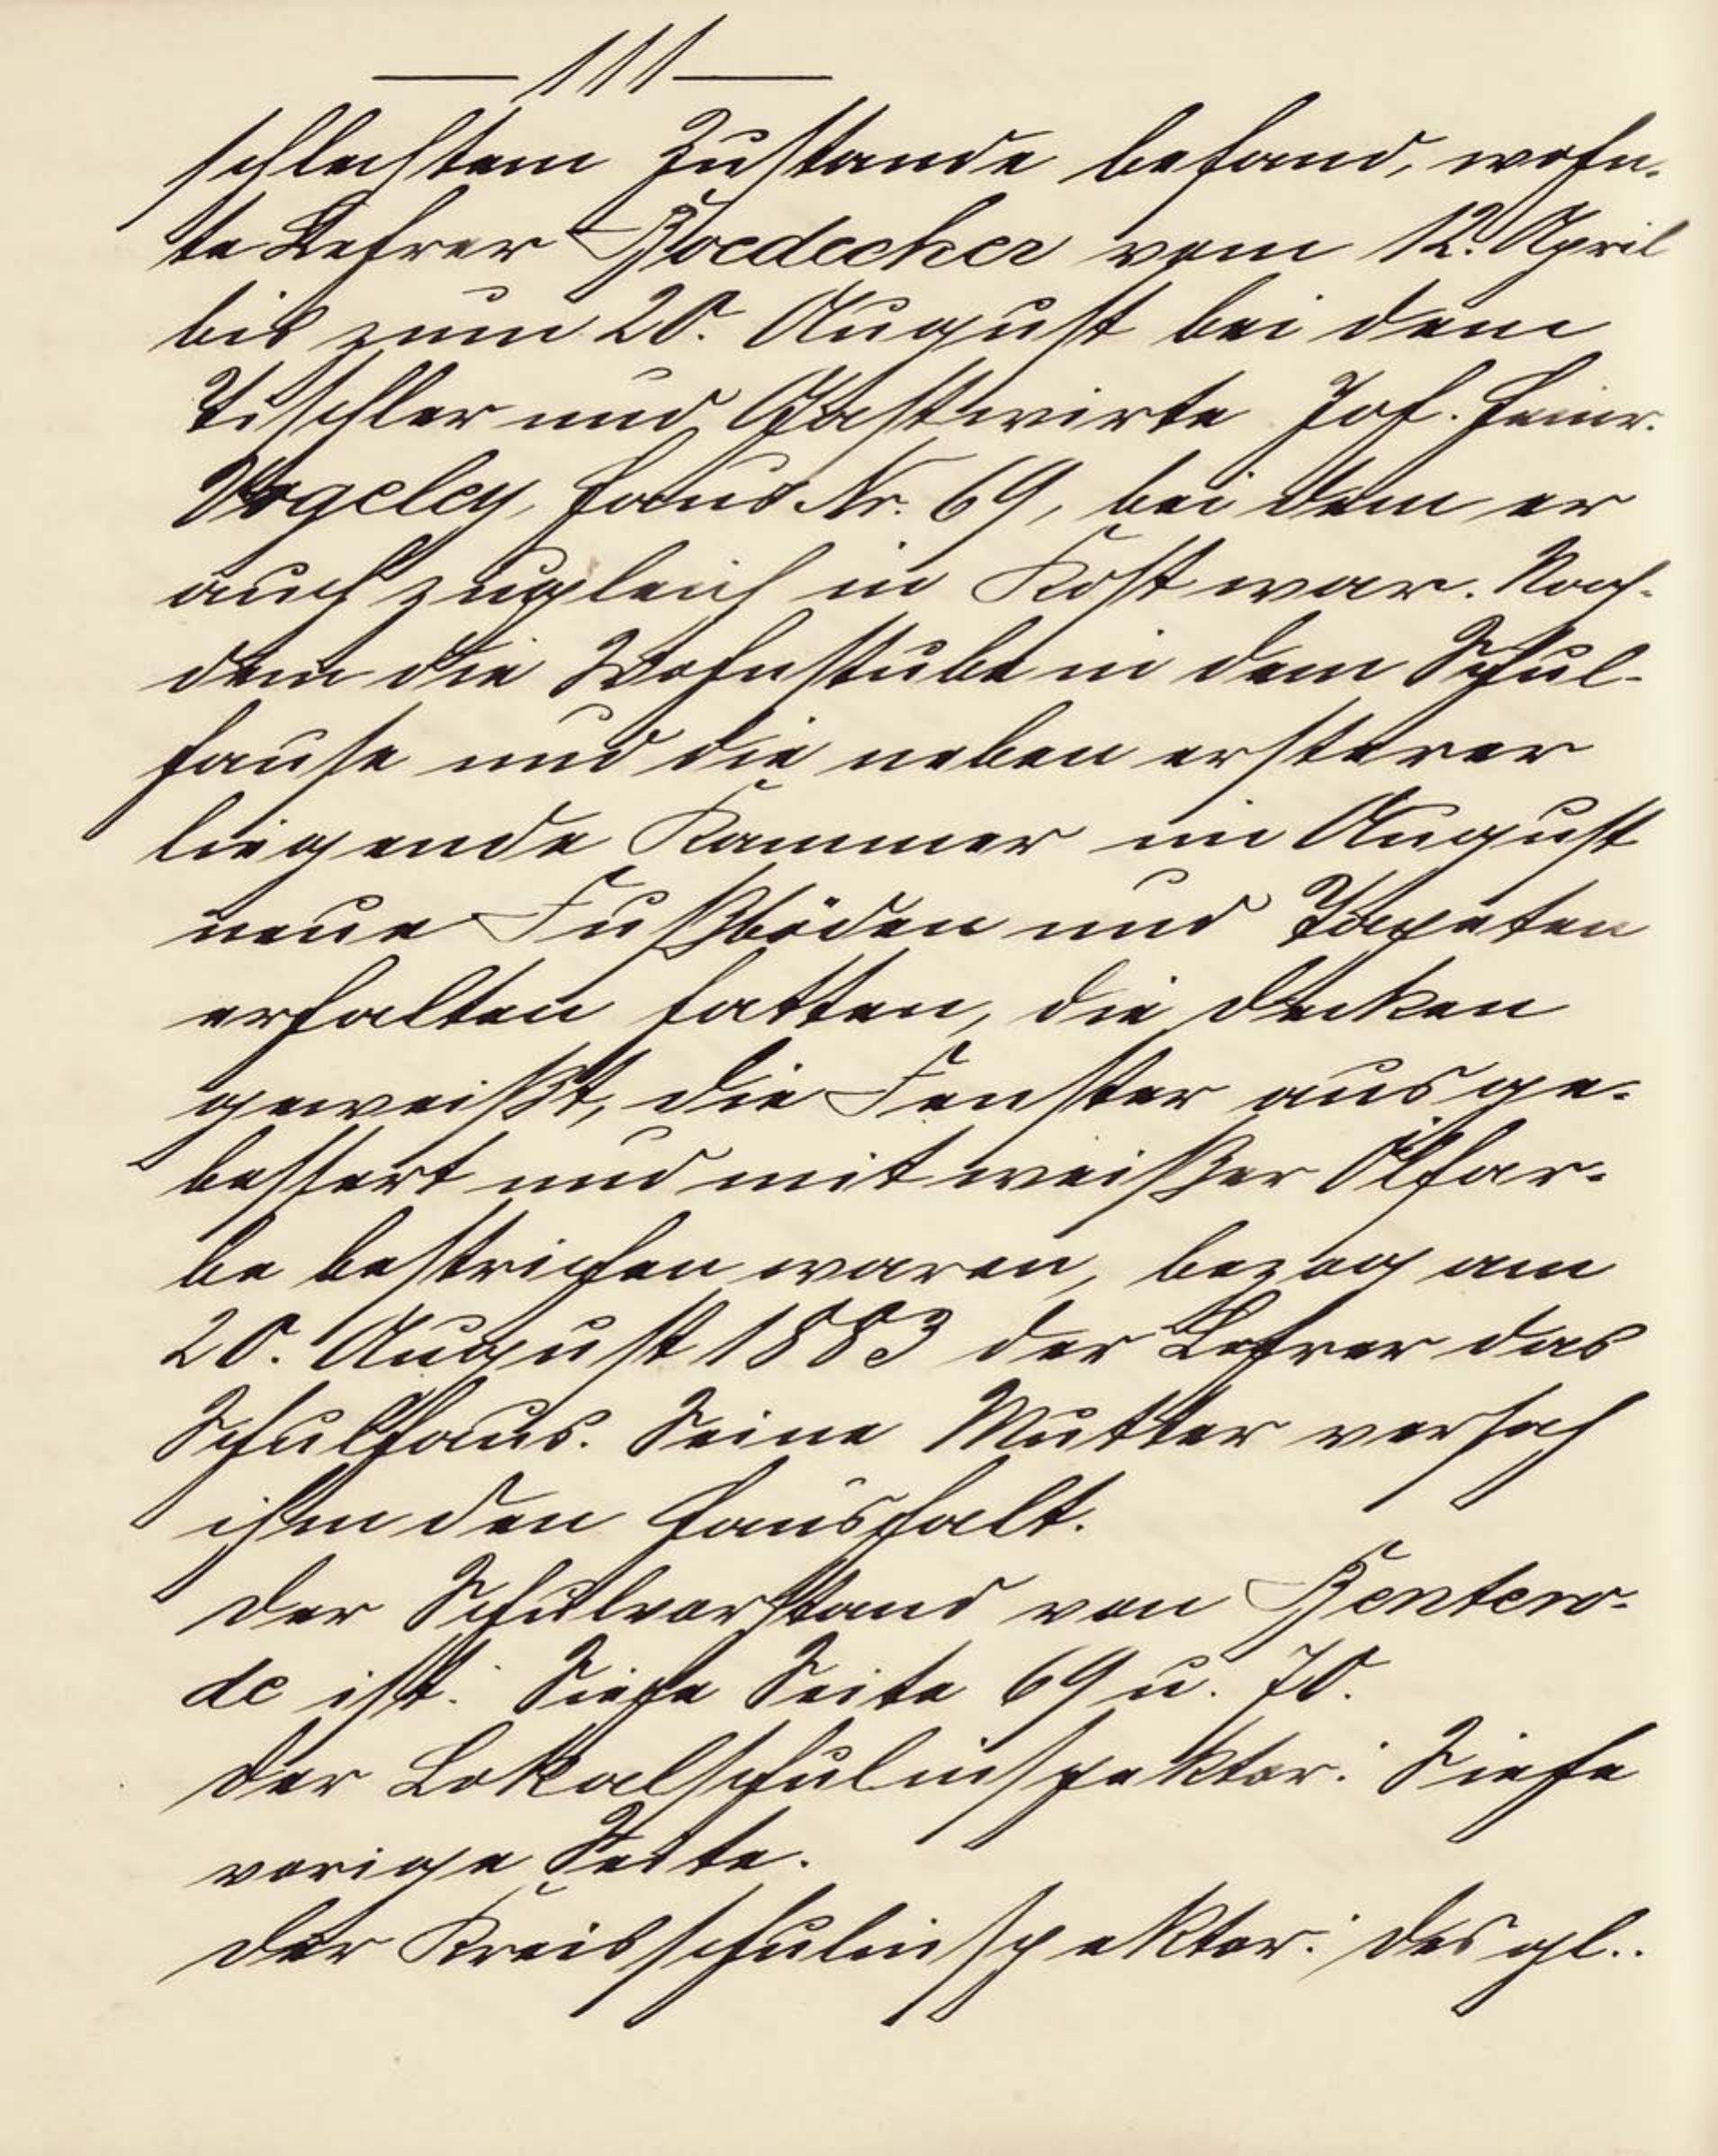 — 111 —
schlechtem Zustande befand, wohn-
te Lehrer Boedecker vom 12. April
bis zum 20. August bei dem
Tischler und Gastwirte Joh. Heinr.
Vogeley, Haus Nr. 69, bei dem er
auch zugleich in Kost war. Nach-
dem die Wohnstube in dem Schul-
hause und die neben ersterer
liegende Kammer im August
neue Fußböden und Tapeten
erhalten hatten, die Decken
geweißt, die Fenster ausge-
bessert und mit weißer Ölfar-
be bestrichen waren, bezog am
20. August 1883 der Lehrer das
Schulhaus. Seine Mutter versah
ihm den Haushalt.
Der Schulvorstand von Bentero-
de ist: Siehe Seite 69 u. 70.
Der Lokalschulinspektor: Siehe
vorige Seite.
Der Kreisschulinspektor: Desgl..